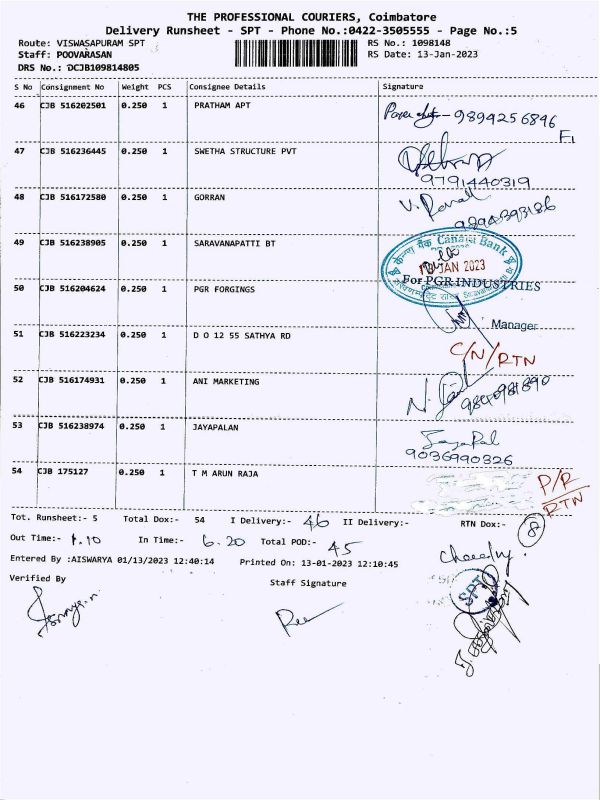 THE PROFESSIONAL COURIERS, Coimbatore
Delivery Runsheet - SPT - Phone No.:0422-3505555 - Page No.:5
Route: VISWASAPURAM SPT RS No.: 1098148
Staff: POOVARASAN RS Date: 13-Jan-2023
DRS No.: DCJB109814805
S No Consignment No Weight PCS Consignee Details Signature
46 CJB 516202501 0.250 1 PRATHAM APT 9894256846
F1
47 CJB 516236445 0.250 1 SWETHA STRUCTURE PVT
9791440319
48 CJB 516172580 0.250 1 GORRAN
49 CJB 516238905 0.250 1 SARAVANAPATTI BT केनरा बैंक Canara Bank
JAN 2023
50 CJB 516204624 0.250 1 PGR FORGINGS For PGR INDUSTRIES
Manager
51 CJB 516223234 0.250 1 D O 12 55 SATHYA RD C/N/RTN
52 CJB 516174931 0.250 1 ANI MARKETING
53 CJB 516238974 0.250 1 JAYAPALAN JayaPal
9036990326
54 CJB 175127 0.250 1 T M ARUN RAJA P/R
RTN
Tot. Runsheet:- 5 Total Dox:- 54 I Delivery:- 46 II Delivery:- RTN Dox:- 8
Out Time:- 1.10 In Time:- 6.20 Total POD:- 45
Entered By :AISWARYA 01/13/2023 12:40:14 Printed On: 13-01-2023 12:10:45
Verified By Staff Signature
SPT